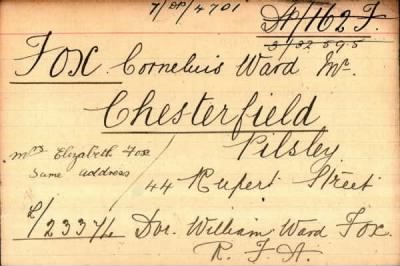 7/DP/4701
DP/162 F.
3/32595
Fox. Corneluis Ward Mr.
Chesterfield
Pilsley
Mrs Elizabeth Fox
Same address
44 Rupert Street
L/23374 Dvr. William Ward Fox.
R. F. A.